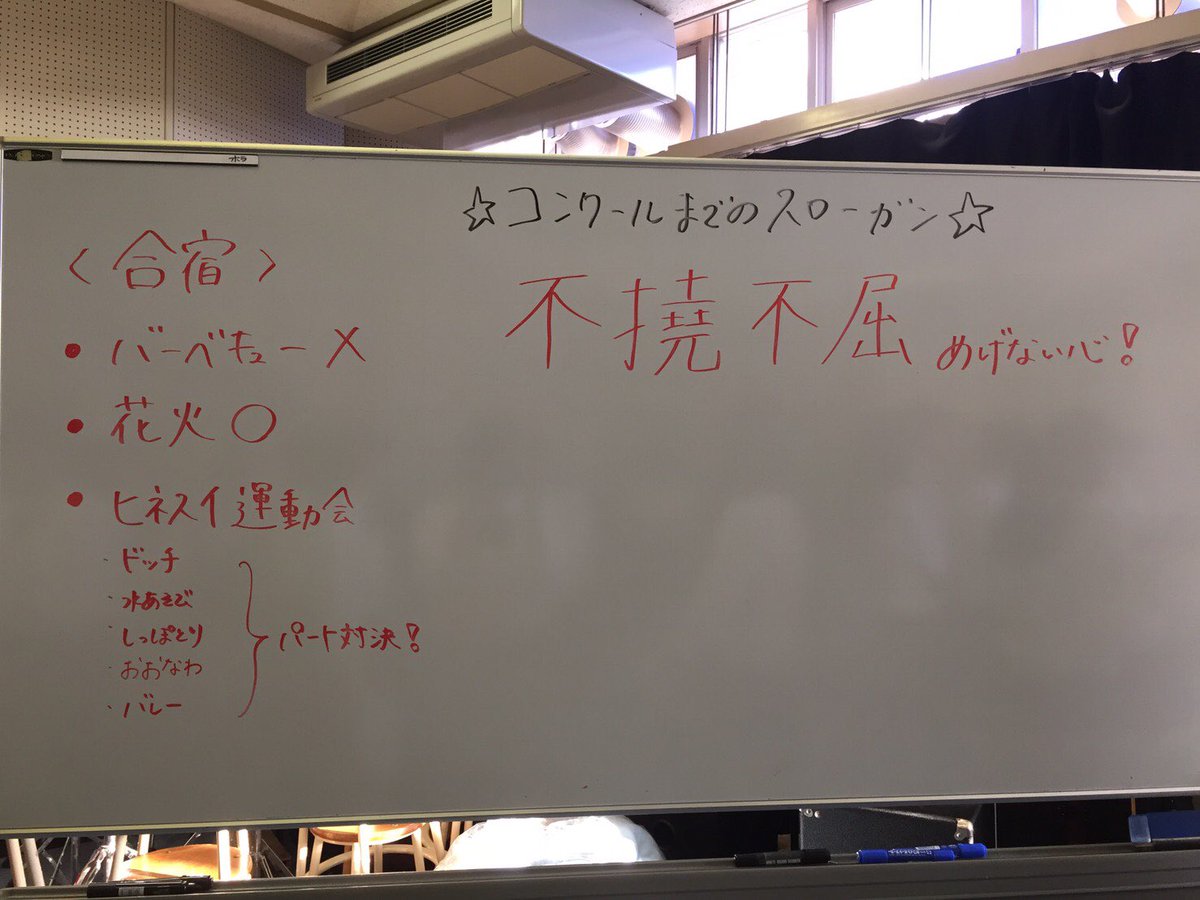 ☆コンクールまでのスローガン☆
不撓不屈 めげない心!
〈合宿〉
• バーベキュー×
• 花火○
• ヒネスイ運動会
・ドッチ
・水あそび
・しっぽとり
・おおなわ
・バレー
パート対決!